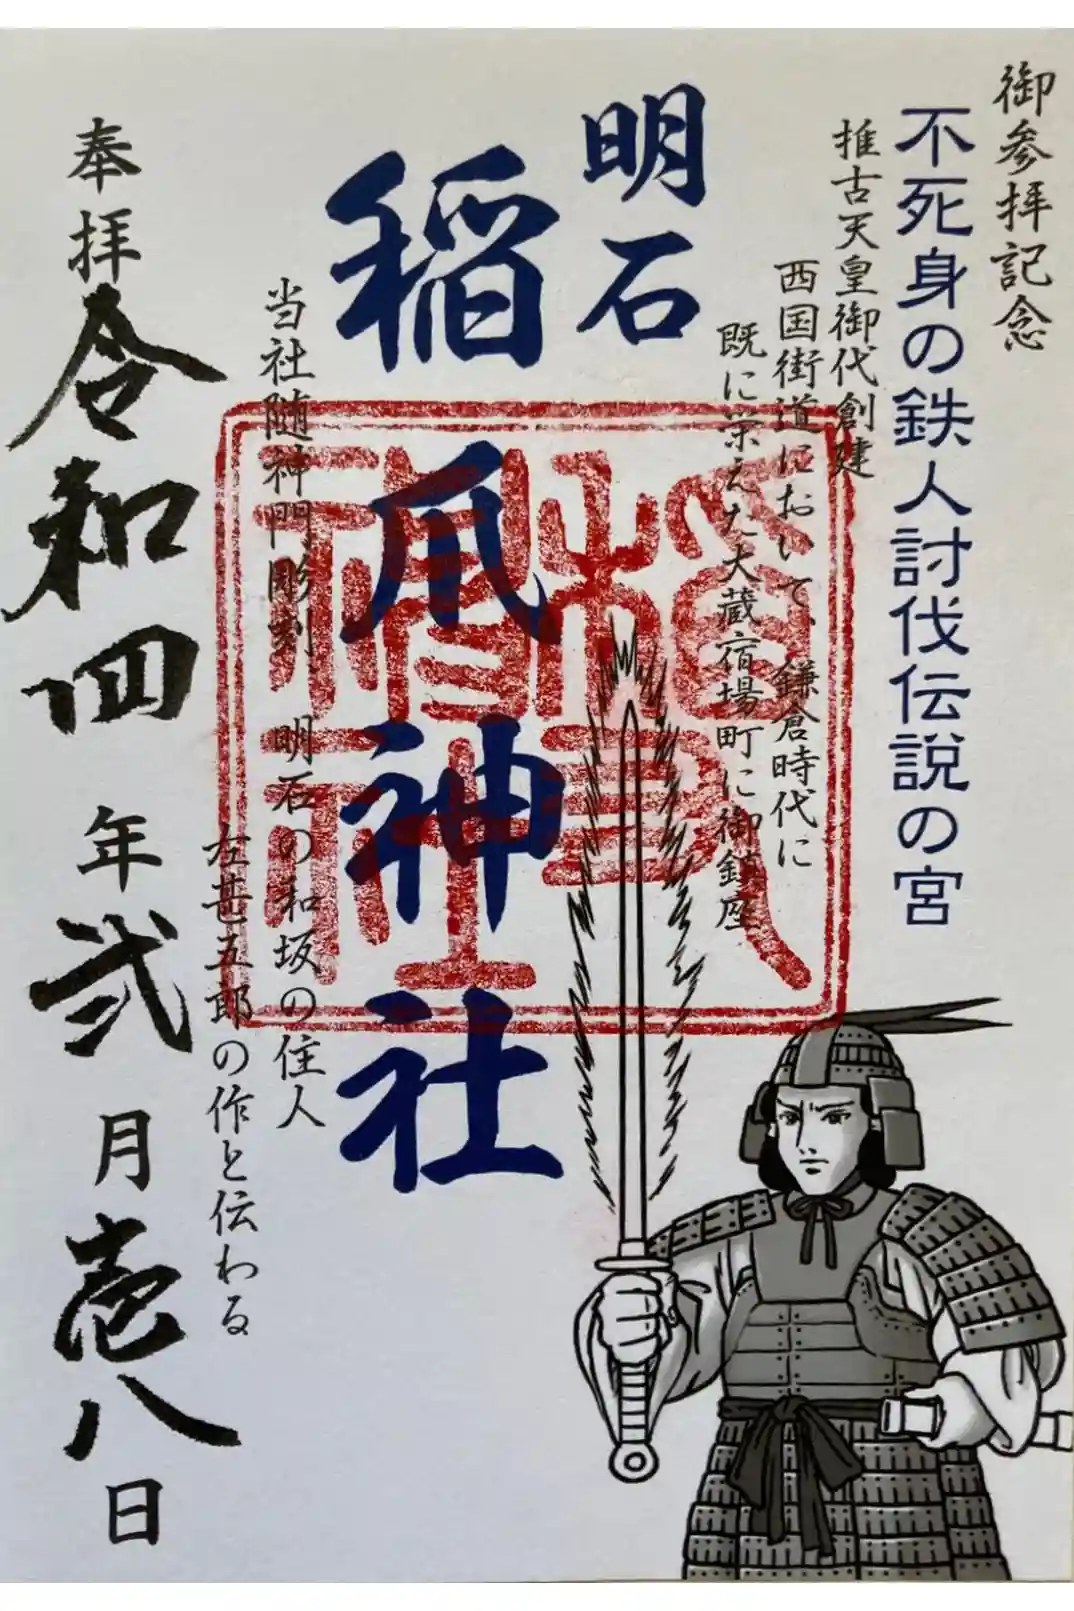 御参拝記念
不死身の鉄人討伐伝説の宮
推古天皇御代創建
西国街道において、鎌倉時代に
既に栄えた大蔵宿場町に御鎮座
明石
稲爪神社
当社随神門彫刻、明石の和坂の住人
左甚五郎の作と伝わる
奉拝
令和四年弐月壱八日